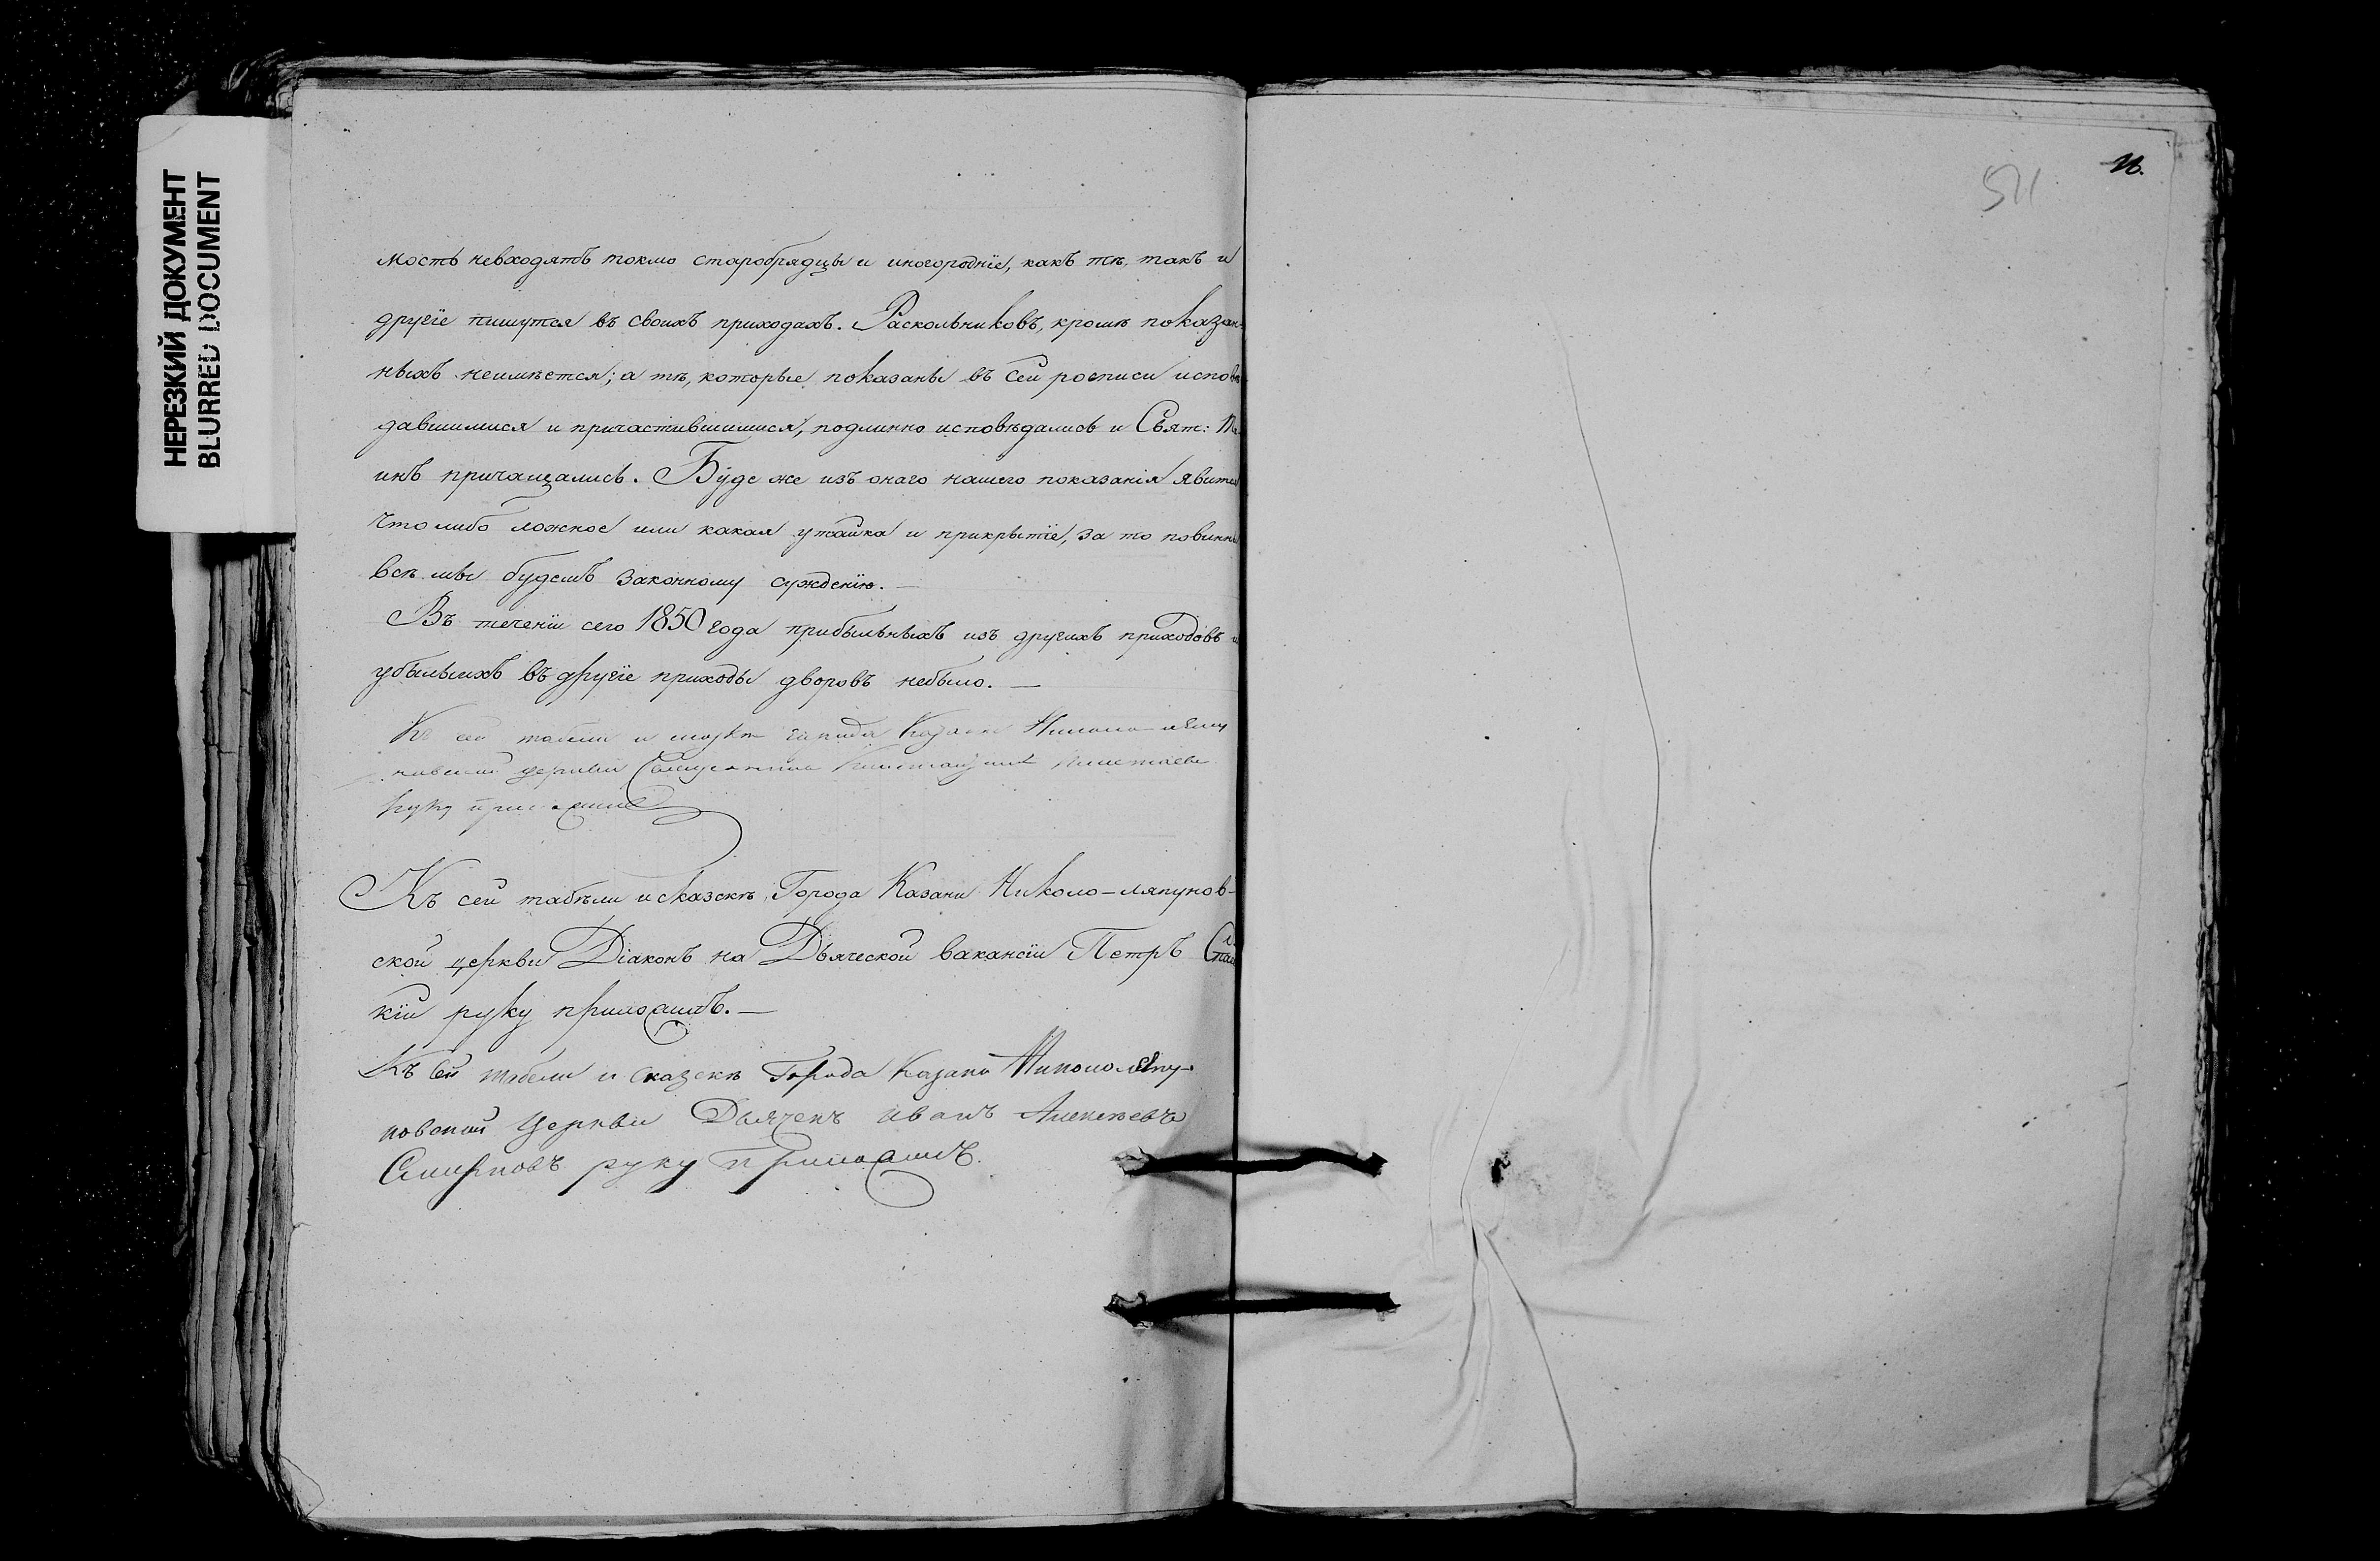 НЕРЕЗКИЙ ДОКУМЕНТ
BLURRED DOCUMENT
мость невходятъ токмо старобрядцы и иногородніе, какъ тѣ, такъ и
другіе пишутся въ своихъ приходахъ. Раскольниковъ, кромѣ показан-
ныхъ неимѣется; а тѣ, которые показаны въ сей росписи исповѣ
давшимися и причастившимися, подлинно исповѣдались и Свят:
инъ причащались. Буде же изъ онаго нашего показанія явится
что либо ложное или какая утайка и прикрытіе, за то повинны
всѣ мы будемъ законному сужденію. —
Въ теченіи сего 1850 года прибыльныхъ изъ другихъ приходовъ и
убылыхъ въ другіе приходы дворовъ небыло. —
Къ сей табели и города Казани Николо-ляпу
новской церкви Священникъ
руку приложилъ
Къ сей табѣли и сказскѣ Города Казани Николо-ляпунов-
ской церкви Діаконъ на Дьяческой вакансіи Петръ
кій руку приложилъ. —
Къ сей табели и сказскѣ Города Казани Никололяпу-
новской Церкви Дьячекъ Иванъ Алексѣевъ
Смирновъ руку приложилъ.
511